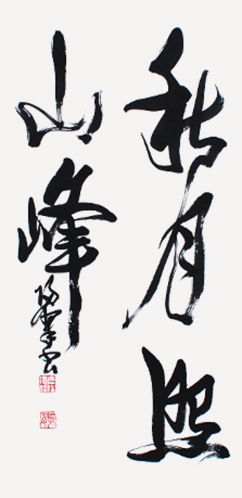 秋月照
山峰